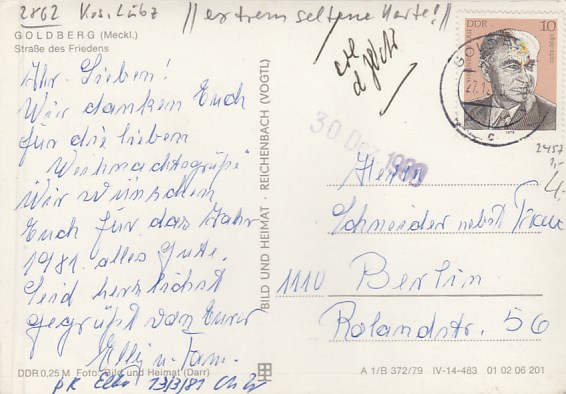 2862 Krs. Lübz // extrem seltene Karte! //
GOLDBERG (Meckl.)
Straße des Friedens
Ihr Lieben!
Wir danken Euch
für die lieben
Weihnachtsgrüße
Wir wünschen
Euch für das Jahr
1981. alles Gute.
Seid herzlichst
gegrüßt von Eurer
Elli u. Fam.
DDR 0,25 M Foto: Bild und Heimat (Darr)
13/3/81
BILD UND HEIMAT · REICHENBACH (VOGTL)
DDR 10
GOLDBERG
27.12.
c
30. Dez. 1980
2457
1,-
4,-
Herrn
Schneider nebst Frau
1110 Berlin
Rolandstr. 56
A 1/B 372/79 IV-14-483 01 02 06 201